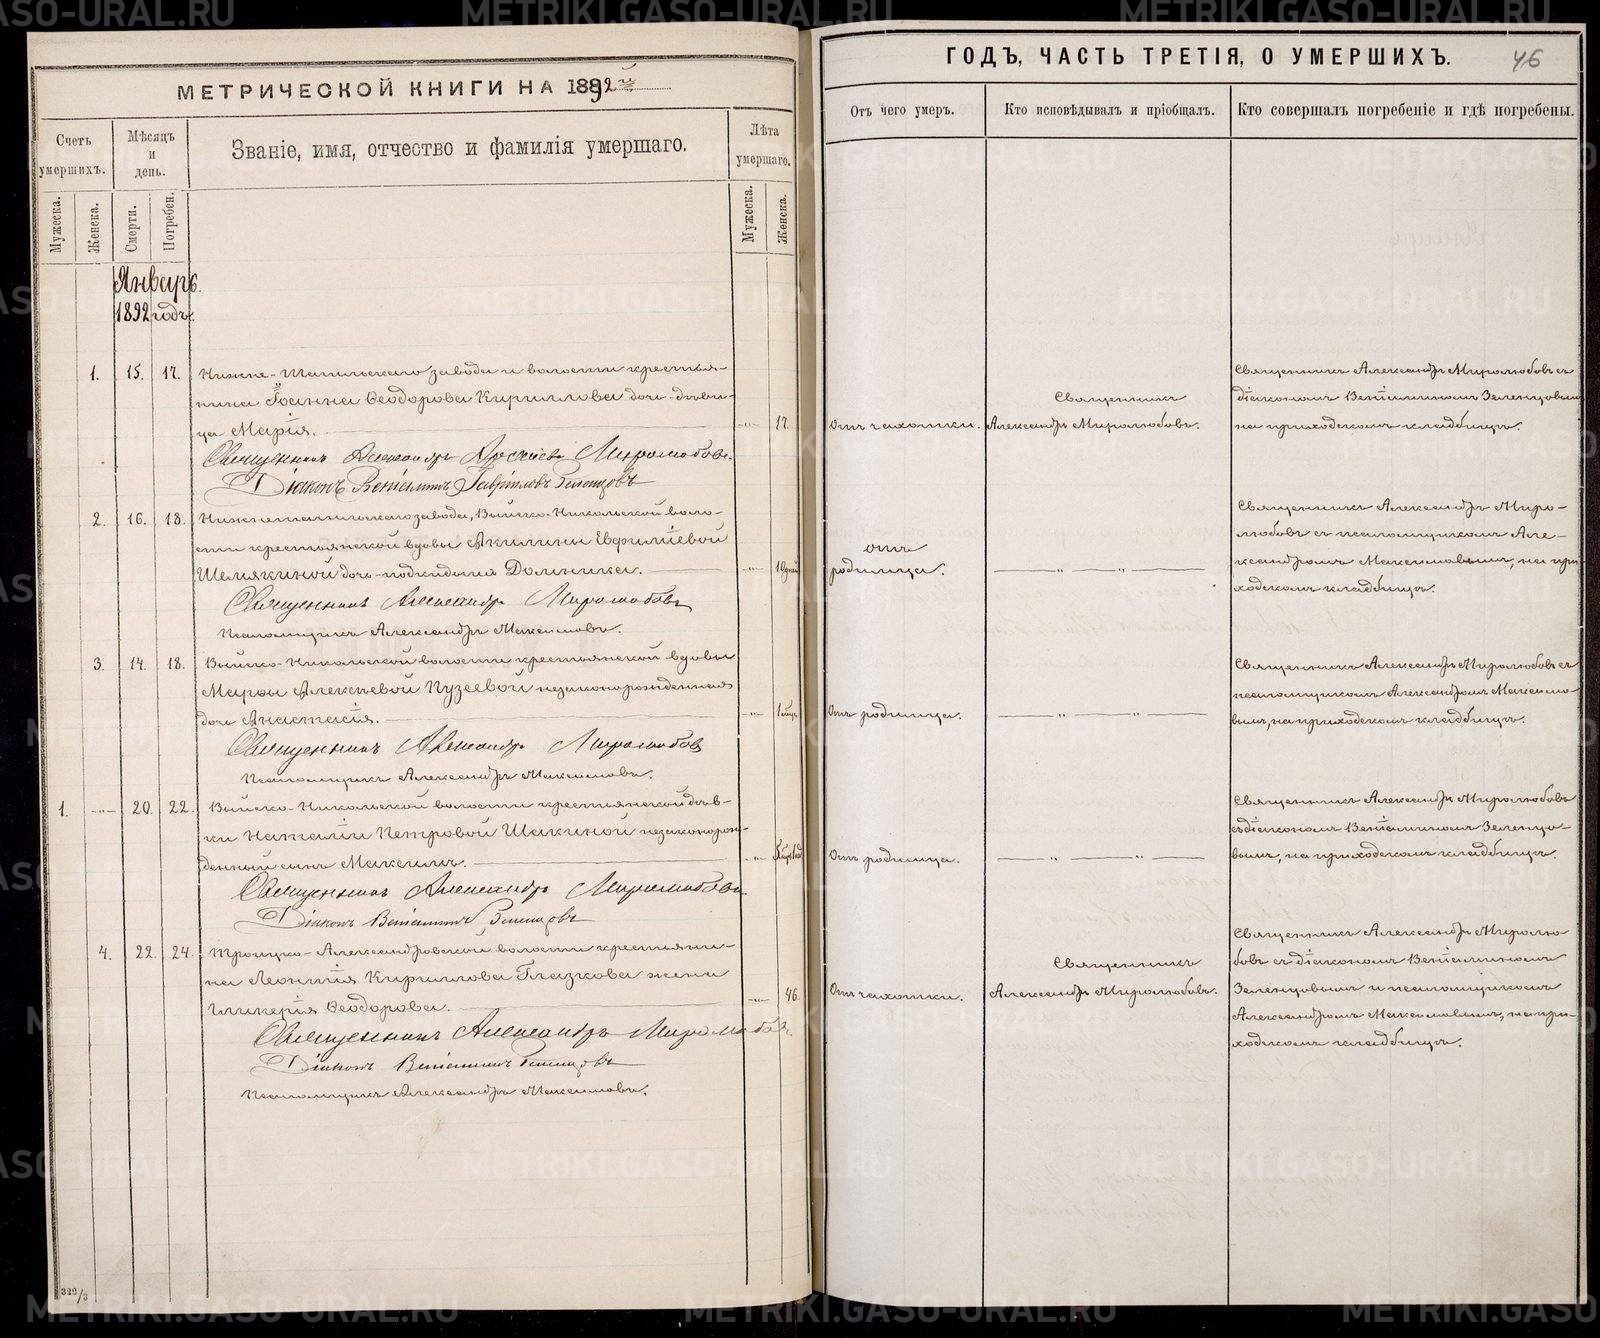 МЕТРИЧЕСКОЙ КНИГИ НА 1892й
Счетъ умершихъ.
Мѣсяцъ и день.
Званіе, имя, отчество и фамилія умершаго.
Лѣта умершаго.
Мужеска.
Женска.
Смерти.
Погребен.
Мужеска.
Женска.
Январь
1892 годъ.
1. 15. 17. Нижне-Тагильскаго завода и волости крестья-
нина Іоанна Ѳеодорова Кириллова дочь-дѣви-
ца Марія. 17.
Священникъ Александръ Миролюбовъ.
Діаконъ Веніаминъ Гавріиловъ Зеленцовъ
2. 16. 18. Нижнетагильскаго завода, Выйско-Никольской воло-
сти крестьянской вдовы Акилины Евфиміевой
Шемякиной дочь-подкидыша Домника.
Священникъ Александръ Миролюбовъ
Псаломщикъ Александръ Максимовъ.
3. 14. 18. Выйско-Никольской волости крестьянской вдовы
Марѳы Алексѣевой Пузеевой незаконорожденная
дочь Анастасія. 1 мѣс.
Священникъ Александръ Миролюбовъ
Псаломщикъ Александръ Максимовъ.
1. 20. 22. Выйско-Никольской волости крестьянской дѣв-
ки Наталіи Петровой Шакиной незаконорож-
денный сынъ Максимъ.
Священникъ Александръ Миролюбовъ
Діаконъ Веніаминъ Зеленцовъ
4. 22. 24. Троицко-Александровской волости крестьяни-
на Леонтія Кириллова Глазкова жена
Гликерія Ѳеодорова. 46.
Священникъ Александръ Миролюбовъ.
Діаконъ Веніаминъ Зеленцовъ
Псаломщикъ Александръ Максимовъ.
322/3
ГОДЪ, ЧАСТЬ ТРЕТІЯ, О УМЕРШИХЪ.
46
Отъ чего умеръ.
Кто исповѣдывалъ и пріобщалъ.
Кто совершалъ погребеніе и гдѣ погребены.
Отъ чахотки.
Священникъ
Александръ Миролюбовъ.
Священникъ Александръ Миролюбовъ съ
діакономъ Веніаминомъ Зеленцовымъ
на приходскомъ кладбищѣ.
отъ
родимца.
— „ — „ —
Священникъ Александръ Миро-
любовъ съ псаломщикомъ Але-
ксандромъ Максимовымъ, на при-
ходскомъ кладбищѣ.
Отъ родимца.
— „ — „ —
Священникъ Александръ Миролюбовъ съ
псаломщикомъ Александромъ Максимо-
вымъ, на приходскомъ кладбищѣ.
Отъ родимца.
— „ — „ —
Священникъ Александръ Миролюбовъ
съ діакономъ Веніаминомъ Зеленцо-
вымъ, на приходскомъ кладбищѣ.
Отъ чахотки.
Священникъ
Александръ Миролюбовъ.
Священникъ Александръ Миролю-
бовъ съ діакономъ Веніаминомъ
Зеленцовымъ и псаломщикомъ
Александромъ Максимовымъ, на при-
ходскомъ кладбищѣ.
METRIKI.GASO-URAL.RU